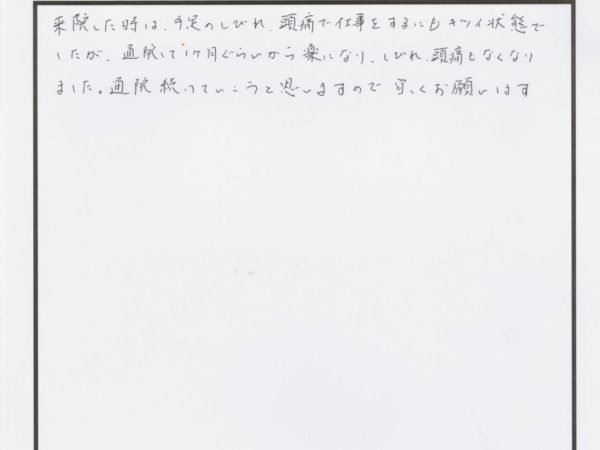 来院した時は、手足のしびれ、頭痛で仕事をするにもキツイ状態で
したが、通院して1ケ月ぐらいから楽になり、しびれ、頭痛もなくなり
ました。通院続けていこうと思いますので宜しくお願いします